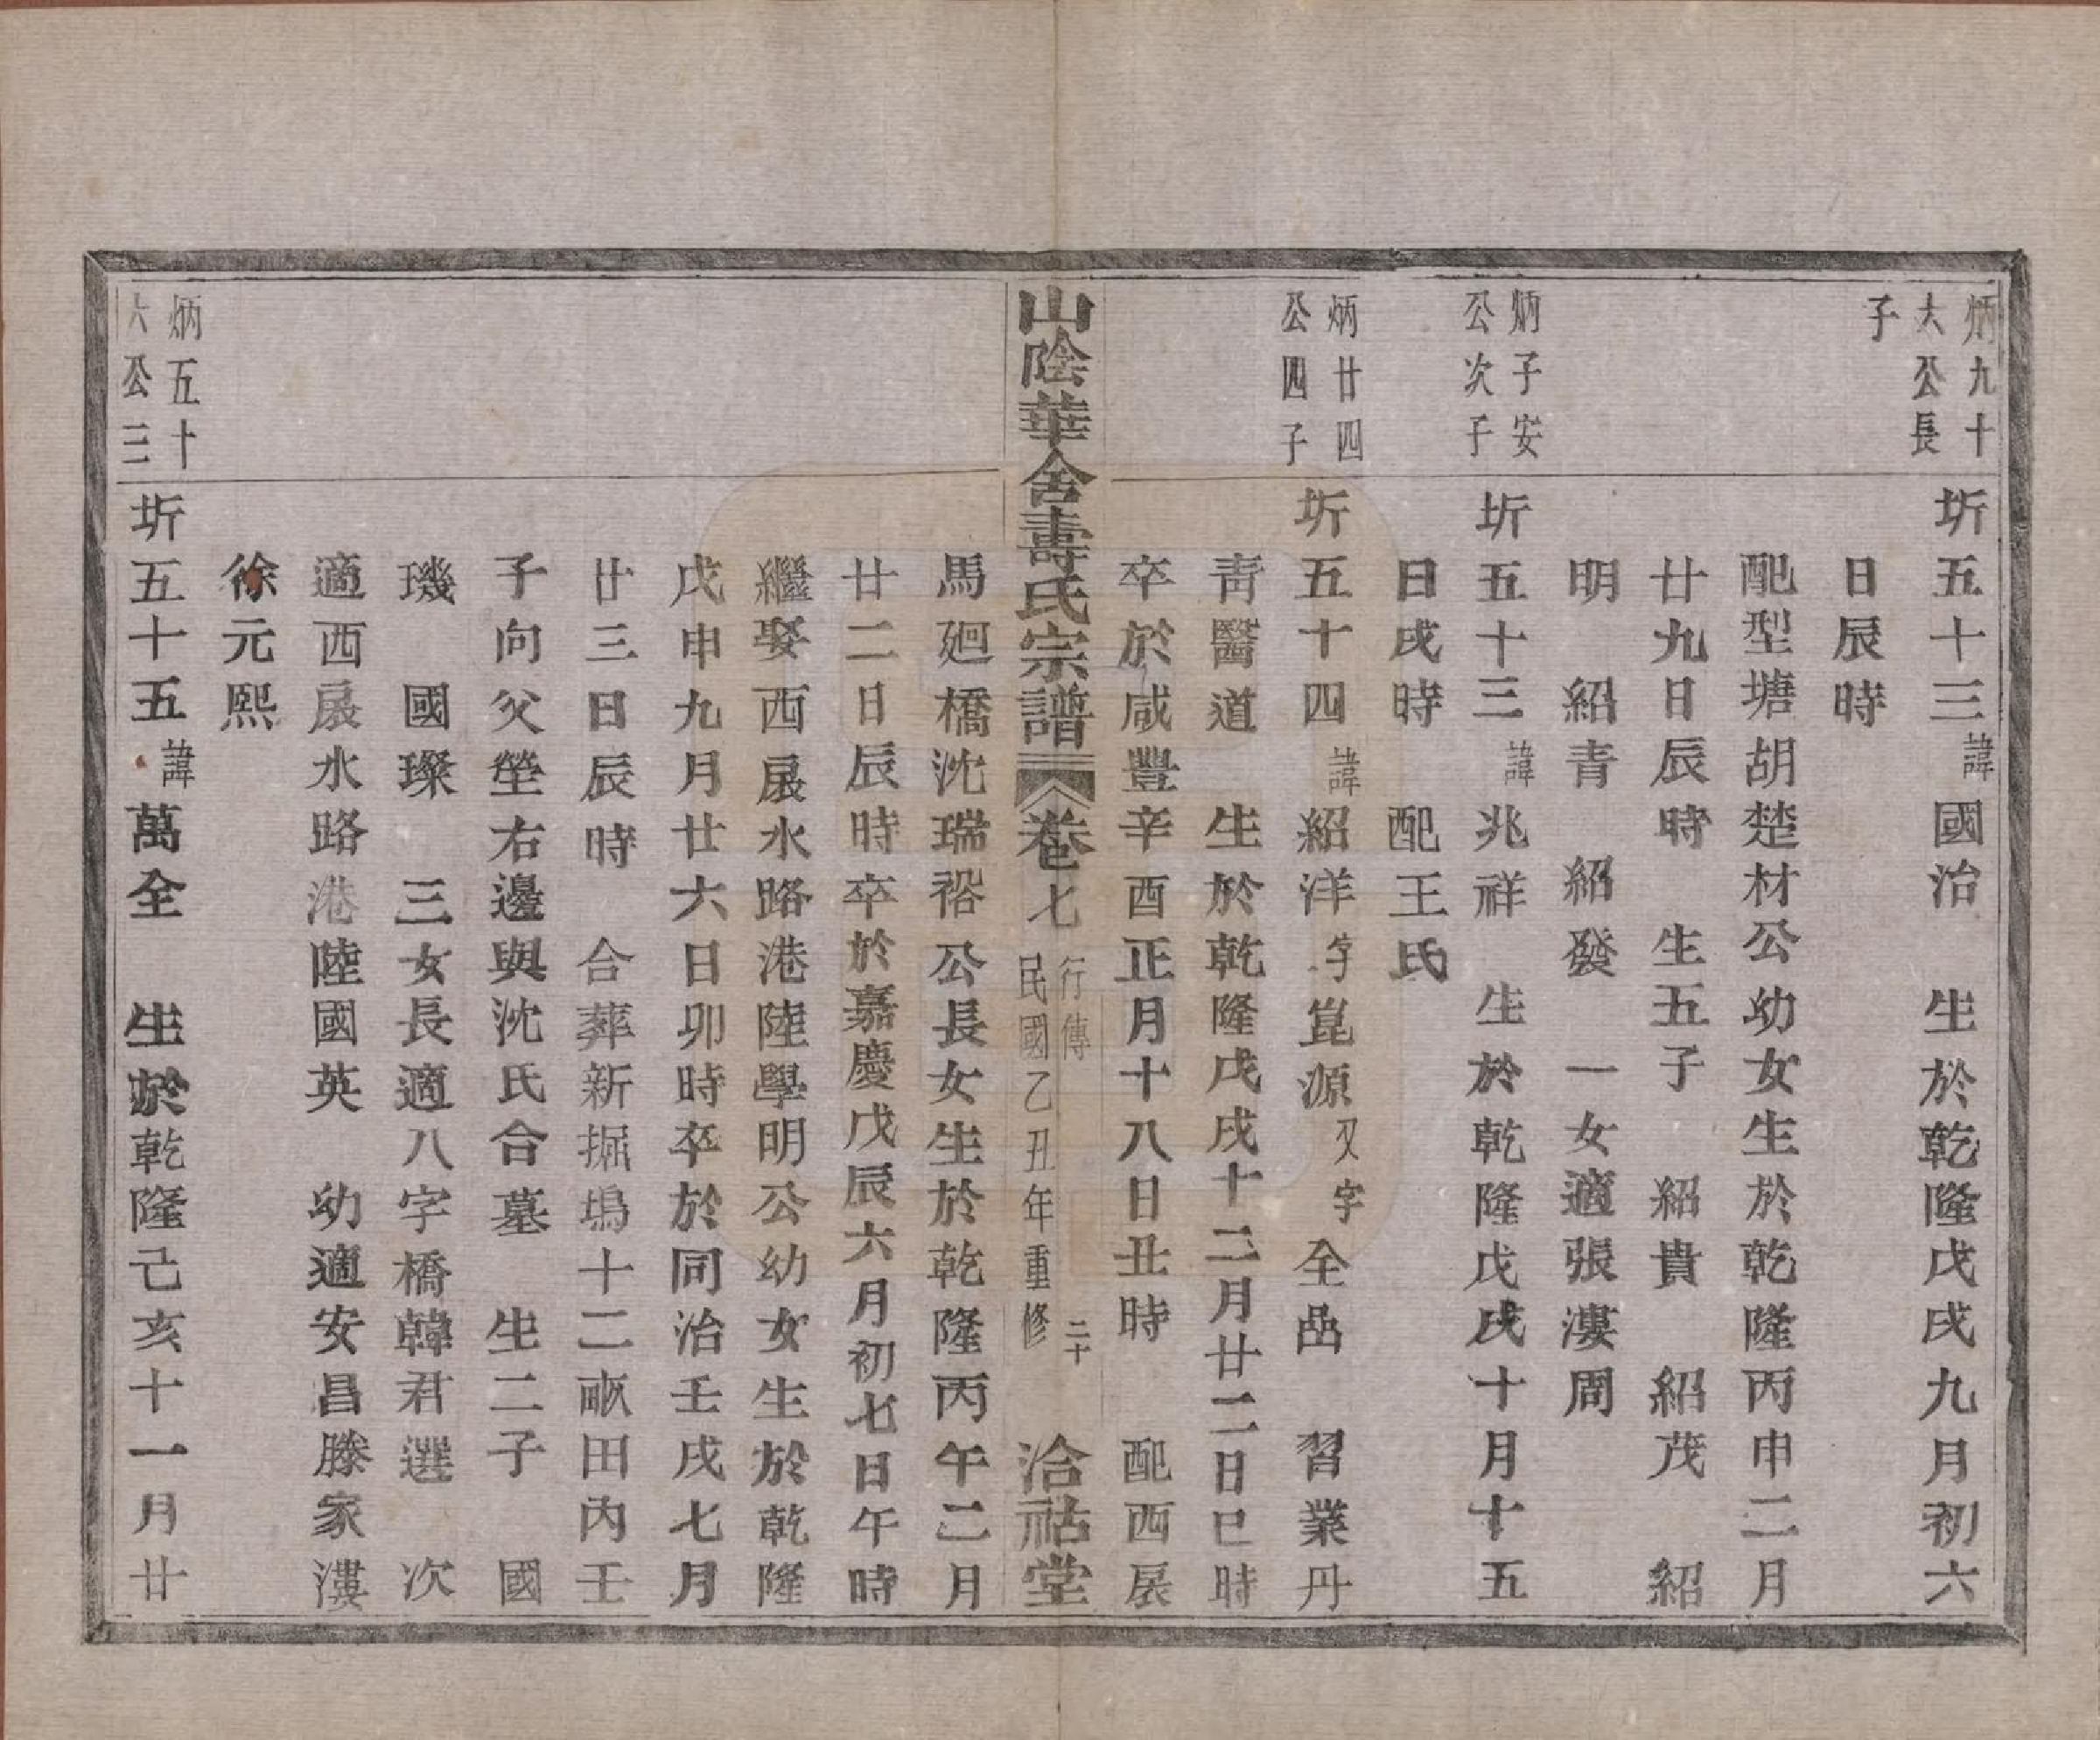 炳九十
大公長
子
圻五十三諱國治　生於乾隆戊戌九月初六
日辰時
配型塘胡楚材公幼女生於乾隆丙申二月
廿九日辰時　生五子　紹貴　紹茂　紹
明　紹青　紹發　一女適張漊周
炳子安
公次子
圻五十三諱兆祥　生於乾隆戊戌十月十五
日戌時　配王氏
炳廿四
公四子
圻五十四諱紹洋字崑源又字全嵒　習業丹
青醫道　生於乾隆戊戌十二月廿二日巳時
卒於咸豐辛酉正月十八日丑時　配西扆
山陰華舍壽氏宗譜　卷七　行傳　民國乙丑年重修　二十　洽祜堂
馬廻橋沈瑞裕公長女生於乾隆丙午二月
廿二日辰時卒於嘉慶戊辰六月初七日午時
繼娶西扆水路港陸學明公幼女生於乾隆
戊申九月廿六日卯時卒於同治壬戌七月
廿三日辰時　合葬新掘塢十二畝田內壬
子向父塋右邊與沈氏合墓　生二子　國
璣　國璨　三女長適八字橋韓君選　次
適西扆水路港陸國英　幼適安昌滕家漊
徐元熙
炳五十
六公三
圻五十五諱萬全　生於乾隆己亥十一月廿